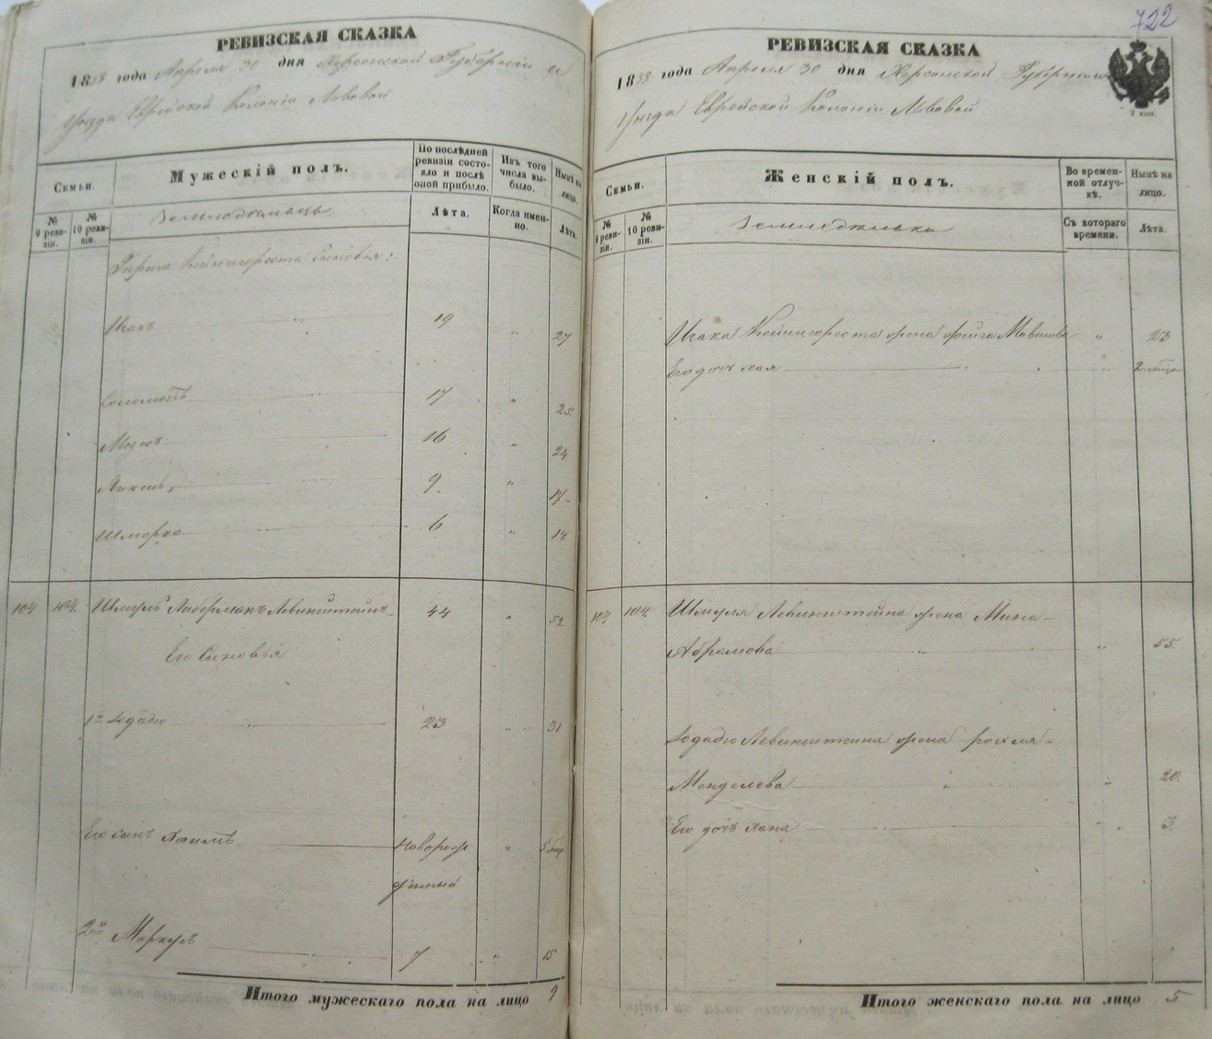 РЕВИЗСКАЯ СКАЗКА
1858 года Апреля 30 дня Херсонской Губерніи и
Уѣзда Еврейской Колоніи Львовой
Семьи.
Мужескій полъ.
По послѣдней ревизіи состояло и послѣ оной прибыло.
Изъ того числа выбыло.
Нынѣ на лицо.
№ 9 ревизіи.
№ 10 ревизіи.
Земледѣльцы
Лѣта.
Когда именно.
Лѣта.
сыновья:
Исакъ 19 " 27
Соломонъ 17 " 25.
16 " 24
9. " 17
Шмерко 6 " 14
104 104. Шмуль Либерманъ Левинштейнъ 44 " 52
Его Сыновья
1й 23 " 31
Его сынъ Хаимъ новорож " 5 мцо
денный
2й Маркус 7 " 15
Итого мужескаго пола на лицо 9
722
РЕВИЗСКАЯ СКАЗКА
1858 года Апреля 30 дня Херсонской Губерніи и
Уѣзда Еврейской Колоніи Львовой
7 коп.
Семьи.
Женскій полъ.
Во временной отлучкѣ.
Нынѣ на лицо.
№ 9 ревизіи.
№ 10 ревизіи.
Земледѣльки
Съ котораго времени.
Лѣта.
Исака жена Фейга " 23
Его дочь Хая "
104 104. Шмуля Левинштейна жена Мина
Абрамова " 55.
Левинштейна жена Рохля
Менделева " 20.
Его дочь Хана " 3.
Итого женскаго пола на лицо 5